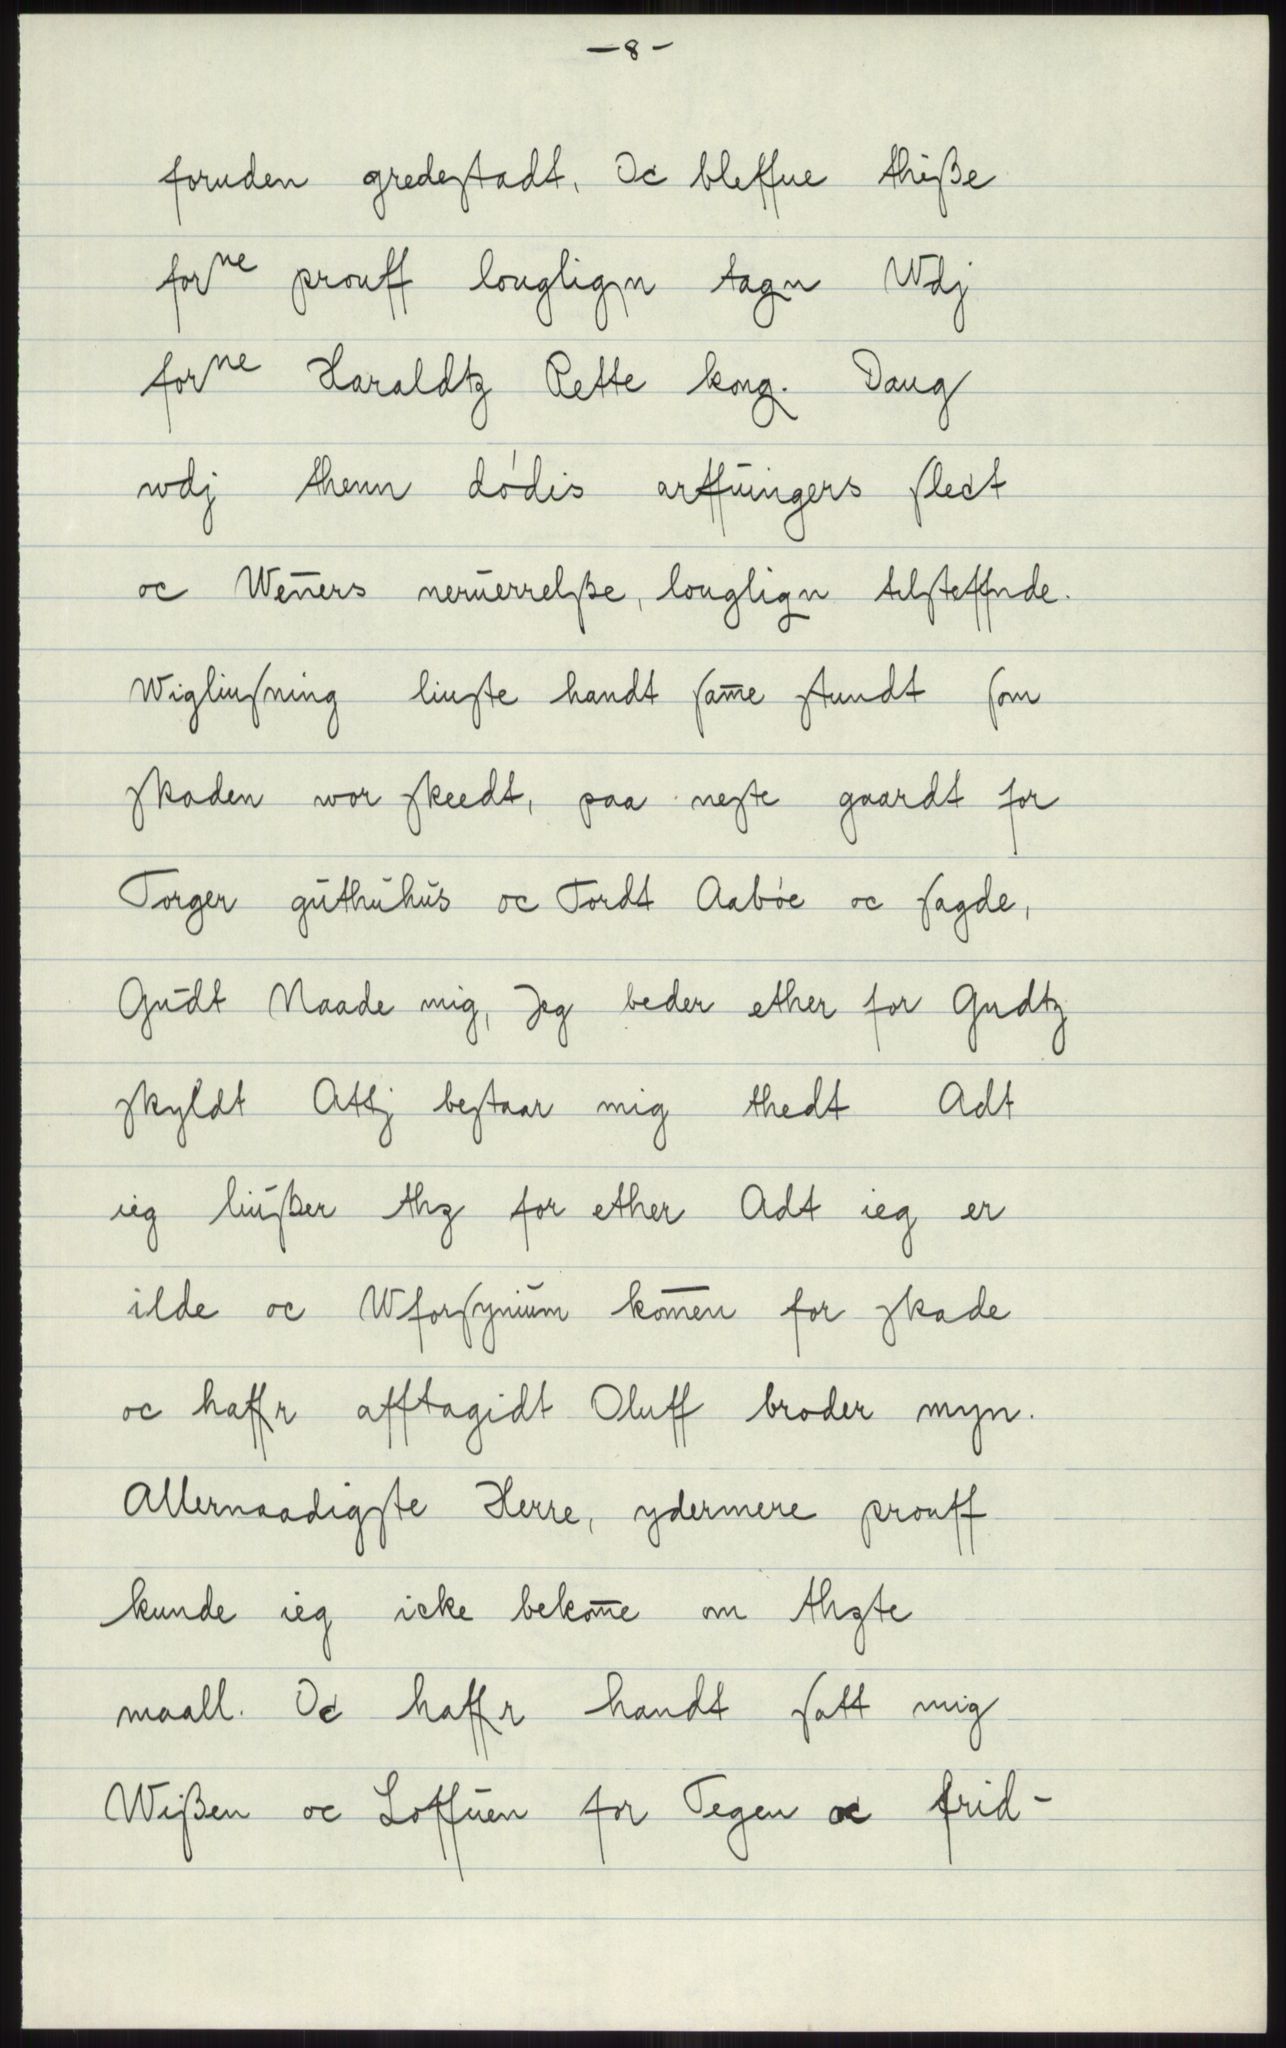 - 8 -
foruden gredestadt. Oc bleffue thiße
forne prouff louglign tagn Wdj
forne Haraldtz Rette kong. Daug
wdj thenn dódis arffuingers slect
oc Weners neruerrelße, louglign tilsteffnde.
Wigliusning liuste handt same stundt som
skaden wor skeedt, paa neste gaardt for
Torger guthuhus oc Tordt Aabóe oc sagde,
Gudt Naade mig, Jeg beder ether for Gudtz
skyldt Attj bestaar mig thedt Adt
ieg liußer thz for ether Adt ieg er
ilde oc Wforsynium komen for skade
oc haffr afftagidt Oluff broder myn.
Allernaadigste Herre, ydermere prouff
kunde ieg icke bekome om thzte
maall. Oc haffr handt satt mig
Wißen oc Loffuen for Tegen oc frid-